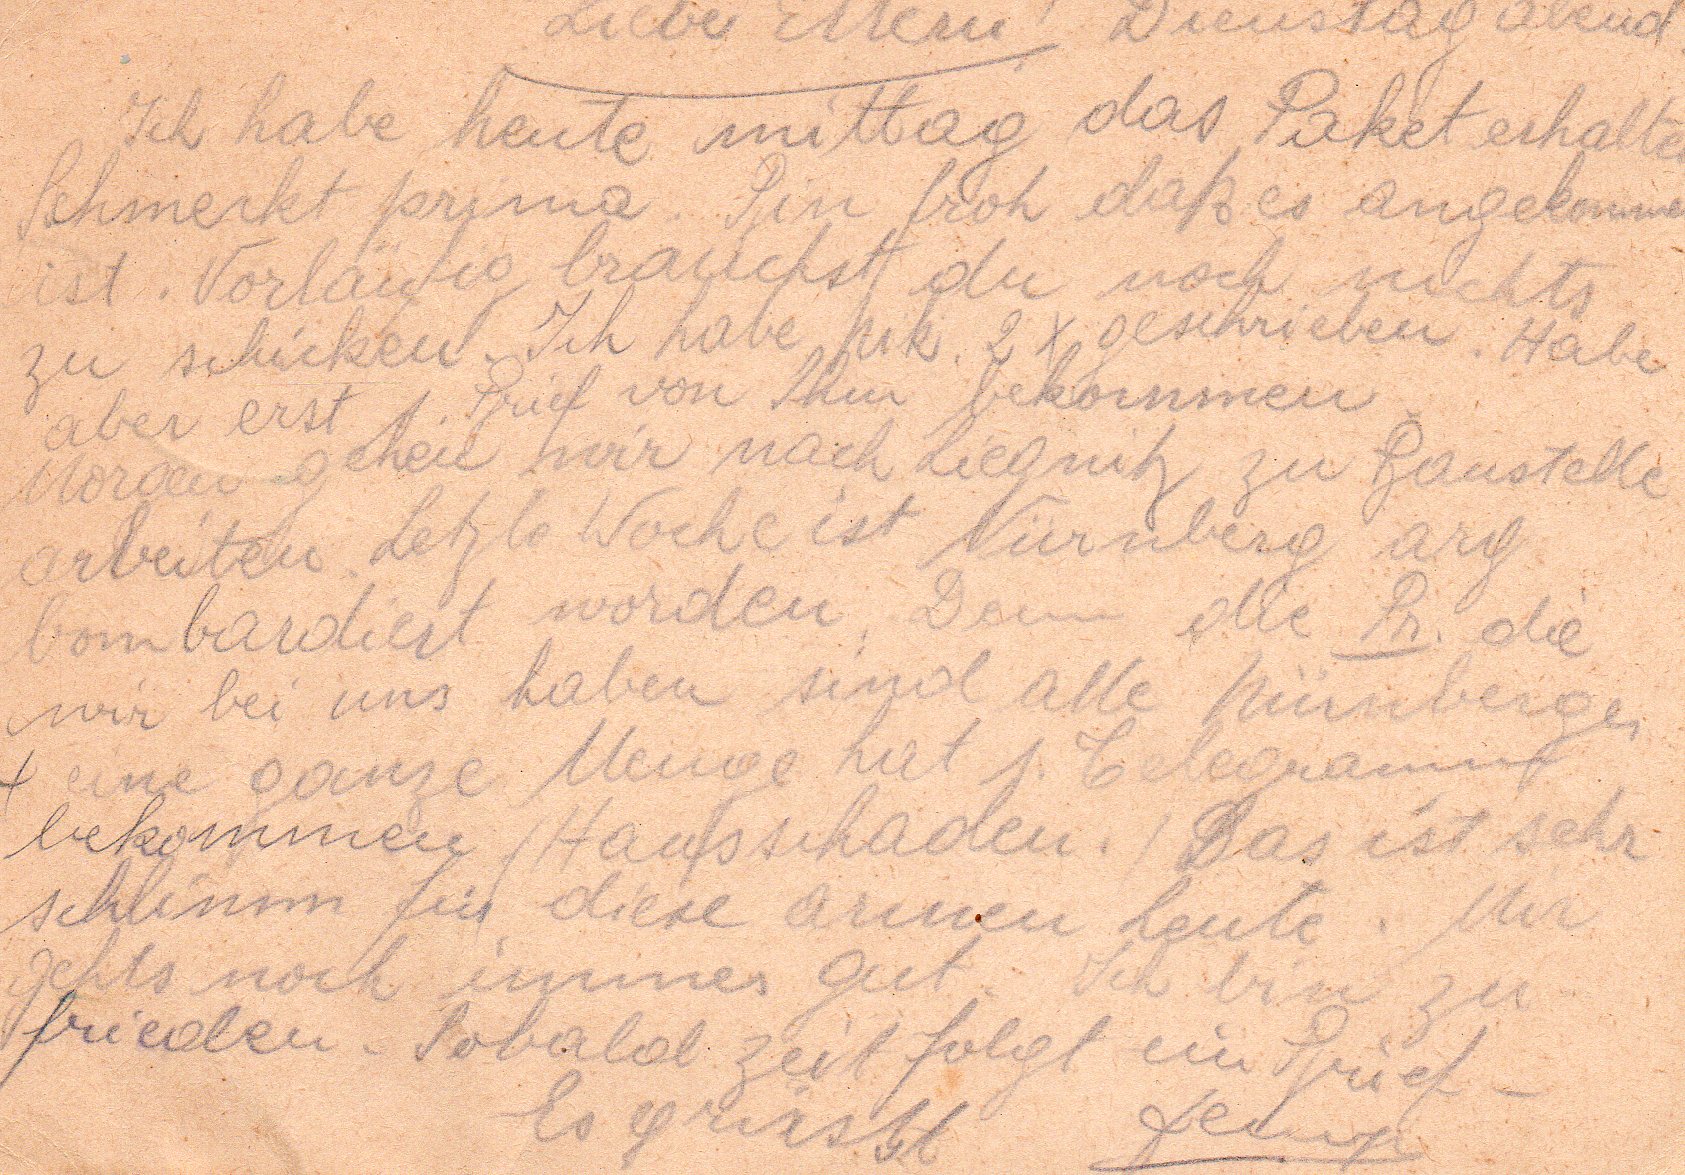 Liebe Eltern! Dienstag abend.
Ich habe heute mittag das Paket erhalten
Schmerkt prima. Bin froh daß es angekommen
ist. Vorläufig brauchst du noch nichts
zu schicken. Ich habe Nik. 2 x geschrieben. Habe
aber erst 1. Brief von Ihm bekommen
Morgen gehen wir nach Liegnitz zu Baustelle
arbeiten. Letzte Woche ist Nürnberg arg
bombardiert worden. Denn die Pi. die
wir bei uns haben sind alle Nürnberger
+ eine ganze Menge hat 1. Telegramm
bekommen (Hausschaden.) Das ist sehr
schlimm für diese armen Leute. Mir
gehts noch immer gut. Ich bin zu-
frieden. Sobald zeit folgt ein Brief –
Es grüsst